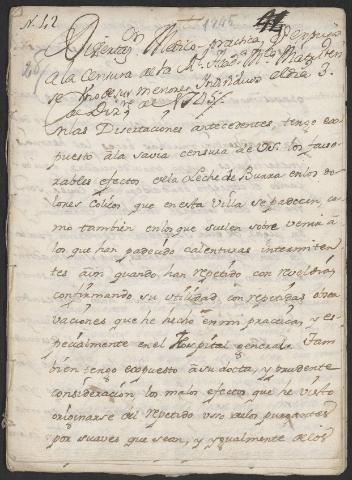 N. 12 1746
Disertaz.on Medico practica, q
a la Censura de la R.l Acad.a Med.ca Matritense
Yno de sus menores Individuos el dia 5.
de Diz.re de 
En las Disertaciones antecedentes, tengo ex-
puesto à la savia censura de Vss. los favo-
rables efectos de la Leche de Burra en los do-
lores colicos que en esta Villa se padecen, co-
mo tambien en los que suelen sobre venir à
los que han padecido calenturas intermiten-
tes aùn quando han repetido con reveldia,
confirmando su utilidad con repetidas obser-
vaciones que he hecho en mi practica, y es-
pecialmente en el Hospital general. Tam-
bien tengo expuesto à su docta, y prudente
consideracion, los malos efectos que he visto
originarse del repetido uso de los purgantes
por suaves que sean, y ygualmente de los